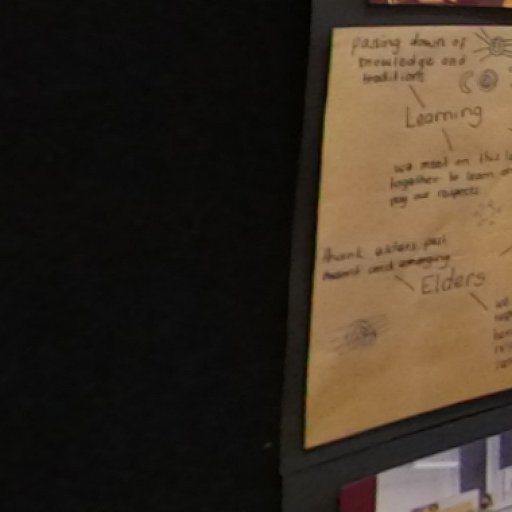 passing down of
knowledge and
traditions
Learning
we meet on this
together to learn
pay our respects
thank elders past
and emerging
Elders
we